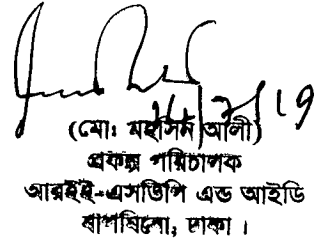 (মোঃ মহসিন আলী)
প্রকল্প পরিচালক
আরইই-এসডিপি এন্ড আইডি
বাপবিবো, ঢাকা ।